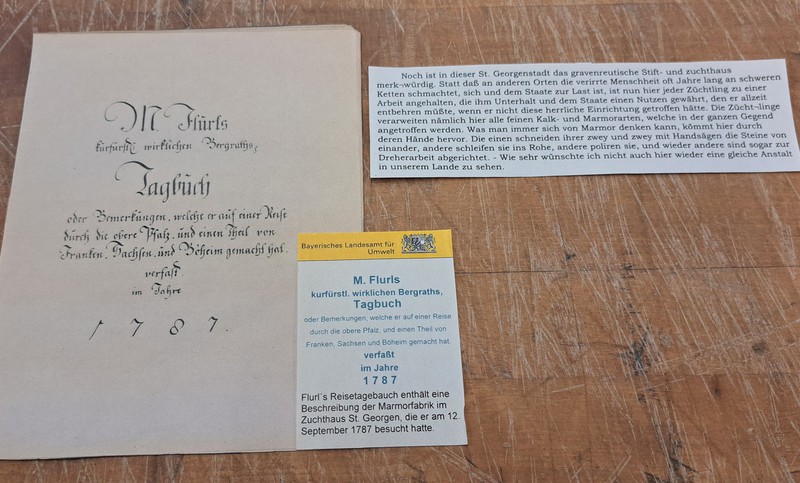 M. Flurls
kurfürstl. wirklichen Bergraths,
Tagbuch
oder Bemerkungen, welche er auf einer Reise
durch die obere Pfalz, und einen Theil von
Franken, Sachsen, und Böheim gemacht hat.
verfaßt
im Jahre
1787.
Bayerisches Landesamt für
Umwelt
M. Flurls
kurfürstl. wirklichen Bergraths,
Tagbuch
oder Bemerkungen, welche er auf einer Reise
durch die obere Pfalz, und einen Theil von
Franken, Sachsen und Böheim gemacht hat.
verfaßt
im Jahre
1 7 8 7
Flurl´s Reisetagebauch enthält eine
Beschreibung der Marmorfabrik im
Zuchthaus St. Georgen, die er am 12.
September 1787 besucht hatte.
Noch ist in dieser St. Georgenstadt das gravenreutische Stift- und zuchthaus
merk¬würdig. Statt daß an anderen Orten die verirrte Menschheit oft Jahre lang an schweren
Ketten schmachtet, sich und dem Staate zur Last ist, ist nun hier jeder Züchtling zu einer
Arbeit angehalten, die ihm Unterhalt und dem Staate einen Nutzen gewährt, den er allzeit
entbehren müßte, wenn er nicht diese herrliche Einrichtung getroffen hätte. Die Zücht¬linge
verarweiten nämlich hier alle feinen Kalk- und Marmorarten, welche in der ganzen Gegend
angetroffen werden. Was man immer sich von Marmor denken kann, kömmt hier durch
deren Hände hervor. Die einen schneiden ihrer zwey und zwey mit Handsägen die Steine von
einander, andere schleifen sie ins Rohe, andere poliren sie, und wieder andere sind sogar zur
Dreherarbeit abgerichtet. - Wie sehr wünschte ich nicht auch hier wieder eine gleiche Anstalt
in unserem Lande zu sehen.